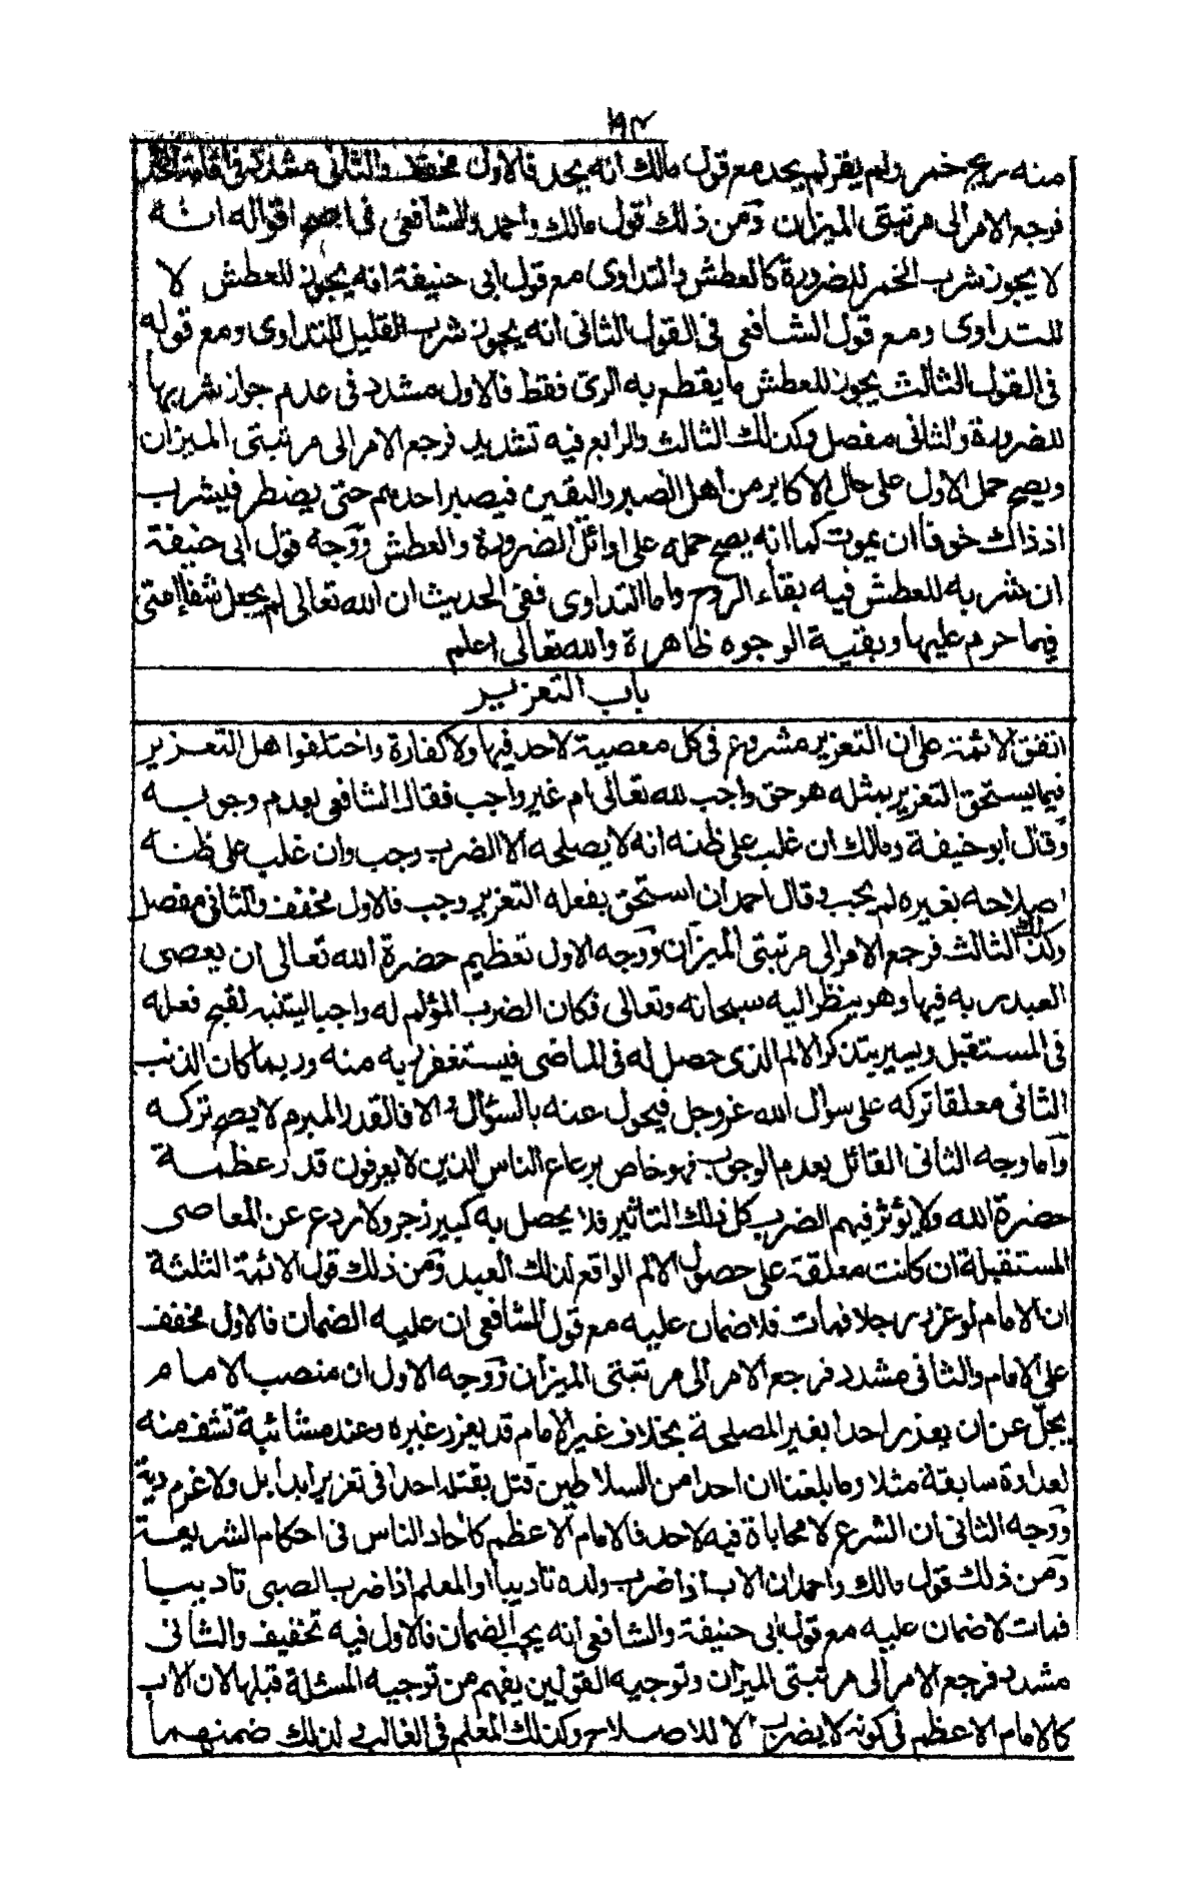 ١٩٢
منه ريح خمر ولم يقر لم يحد مع قول مالك انه يحد فالاول مخفف والثانى مشدد فى اقامة الحد
فرجع الامر الى مرتبتى الميزان ومن ذلك قول مالك واحمد والشافعى فى اصح اقواله انه
لا يجوز شرب الخمر للضرورة كالعطش والتداوى مع قول ابى حنيفة انه يجوز للعطش لا
للتداوى ومع قول الشافعى فى القول الثانى انه يجوز شرب القليل للتداوى ومع قوله
فى القول الثالث يجوز للعطش ما يقطع به الرى فقط فالاول مشدد فى عدم جواز شربها
للضرورة والثانى مفصل وكذلك الثالث والرابع فيه تشديد فرجع الامر الى مرتبتى الميزان
ويصح حمل الاول على حال الاكابر من اهل الصبر واليقين فيصبر احدهم حتى يضطر فيشرب
اذ ذاك خوفا ان يموت كما انه يصح حمله على اوائل الضرورة والعطش ووجه قول ابى حنيفة
ان شربه للعطش فيه بقاء الروح واما التداوى ففى الحديث ان الله تعالى لم يجعل شفا امتى
فيما حرم عليها وبقية الوجوه ظاهرة والله تعالى اعلم
باب التعزير
اتفق الائمة على ان التعزير مشروع فى كل معصية لا حد فيها ولا كفارة واختلفوا هل التعزير
فيما يستحق التعزير بمثله هو حق واجب لله تعالى ام غير واجب فقال الشافعى بعدم وجوبه
وقال ابو حنيفة ومالك ان غلب على ظنه انه لا يصلحه الا الضرب وجب وان غلب على ظنه
اصلاحه بغيره لم يجب وقال احمد ان استحق بفعله التعزير وجب فالاول مخفف والثانى مفصل
وكذلك الثالث فرجع الامر الى مرتبتى الميزان ووجه الاول تعظيم حضرة الله تعالى ان يعصى
العبد ربه فيها وهو ينظر اليه سبحانه وتعالى فكان الضرب المؤلم له واجبا ليتنبه لقبح فعله
فى المستقبل ويسير يتذكر الالم الذى حصل له فى الماضى فيستغفر ربه منه وربما كان الذنب
الثانى معلقا تركه على سوال الله عز وجل فيحول عنه بالسؤال والا فالقدر المبرم لا يصح تركه
واما وجه الثانى القائل بعدم الوجوب فهو خاص برعاع الناس الذين لا يعرفون قدر عظمة
حضرة الله ولا يؤثر فيهم الضرب كل ذلك التاثير فلا يحصل به كبير زجر ولا ردع عن المعاصى
المستقبلة ان كانت معلقة على حصول الالم الواقع لذلك العبد ومن ذلك قول الائمة الثلثة
ان الامام لو عزر رجلا فمات فلا ضمان عليه مع قول الشافعى ان عليه الضمان فالاول مخفف
على الامام والثانى مشدد فرجع الامر الى مرتبتى الميزان ووجه الاول ان منصب الامام
يجل عن ان يعذر احدا بغير المصلحة بخلاف غير الامام قد يعزر غيره وعنده شائبة تشف منه
لعداوة سابقة مثلا وما بلغنا ان احدا من السلاطين قتل بقتله احدا فى تعزير ابدا بل ولا غرم دية
ووجه الثانى ان الشرع لا محاباة فيه لاحد فالامام الاعظم كآحاد الناس فى احكام الشريعة
ومن ذلك قول مالك واحمد ان الاب اذا ضرب ولده تاديبا او المعلم اذا ضرب الصبى تاديبا
فمات لا ضمان عليه مع قول ابى حنيفة والشافعى انه يجب الضمان فالاول فيه تخفيف والثانى
مشدد فرجع الامر الى مرتبتى الميزان وتوجيه القولين يفهم من توجيه المسئلة قبلها لان الاب
كالامام الاعظم فى كونه لا يضرب الا للاصلاح وكذلك المعلم فى الغالب لذلك ضمنهما